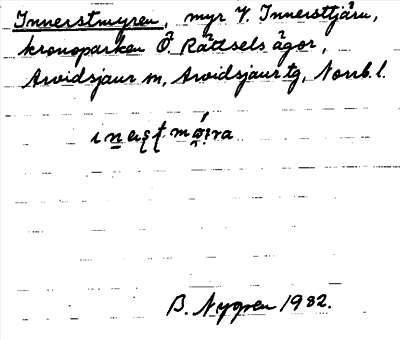 Innerstmyren, myr V. Innersttjärn,
kronoparken Ö. Rättsels ägor,
Arvidsjaur sn, Arvidsjaur tg, Norrb. l.
B. Nygren 1982.